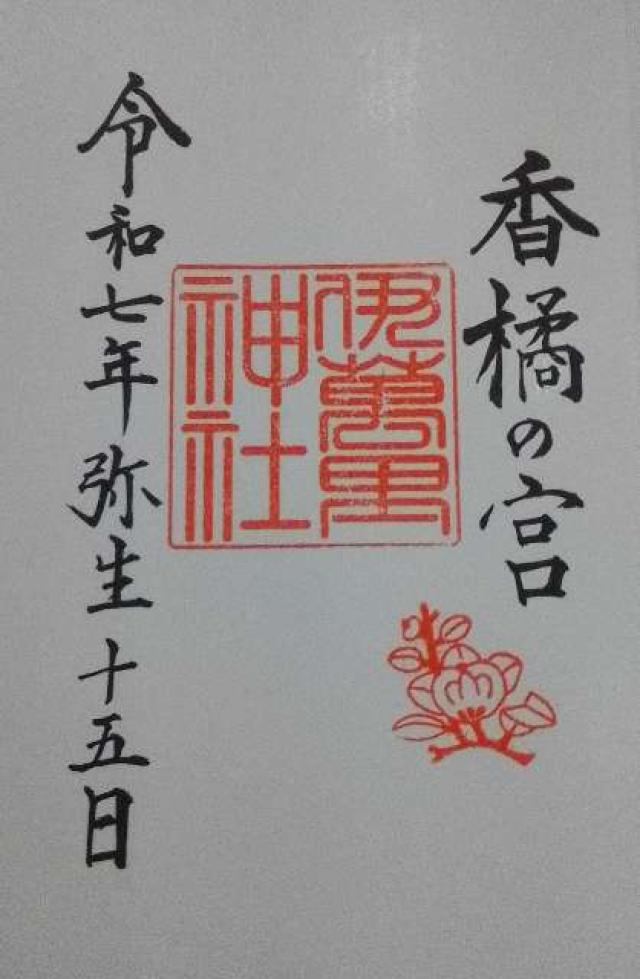 香橘の宮
伊萬里
神社
令和七年弥生十五日